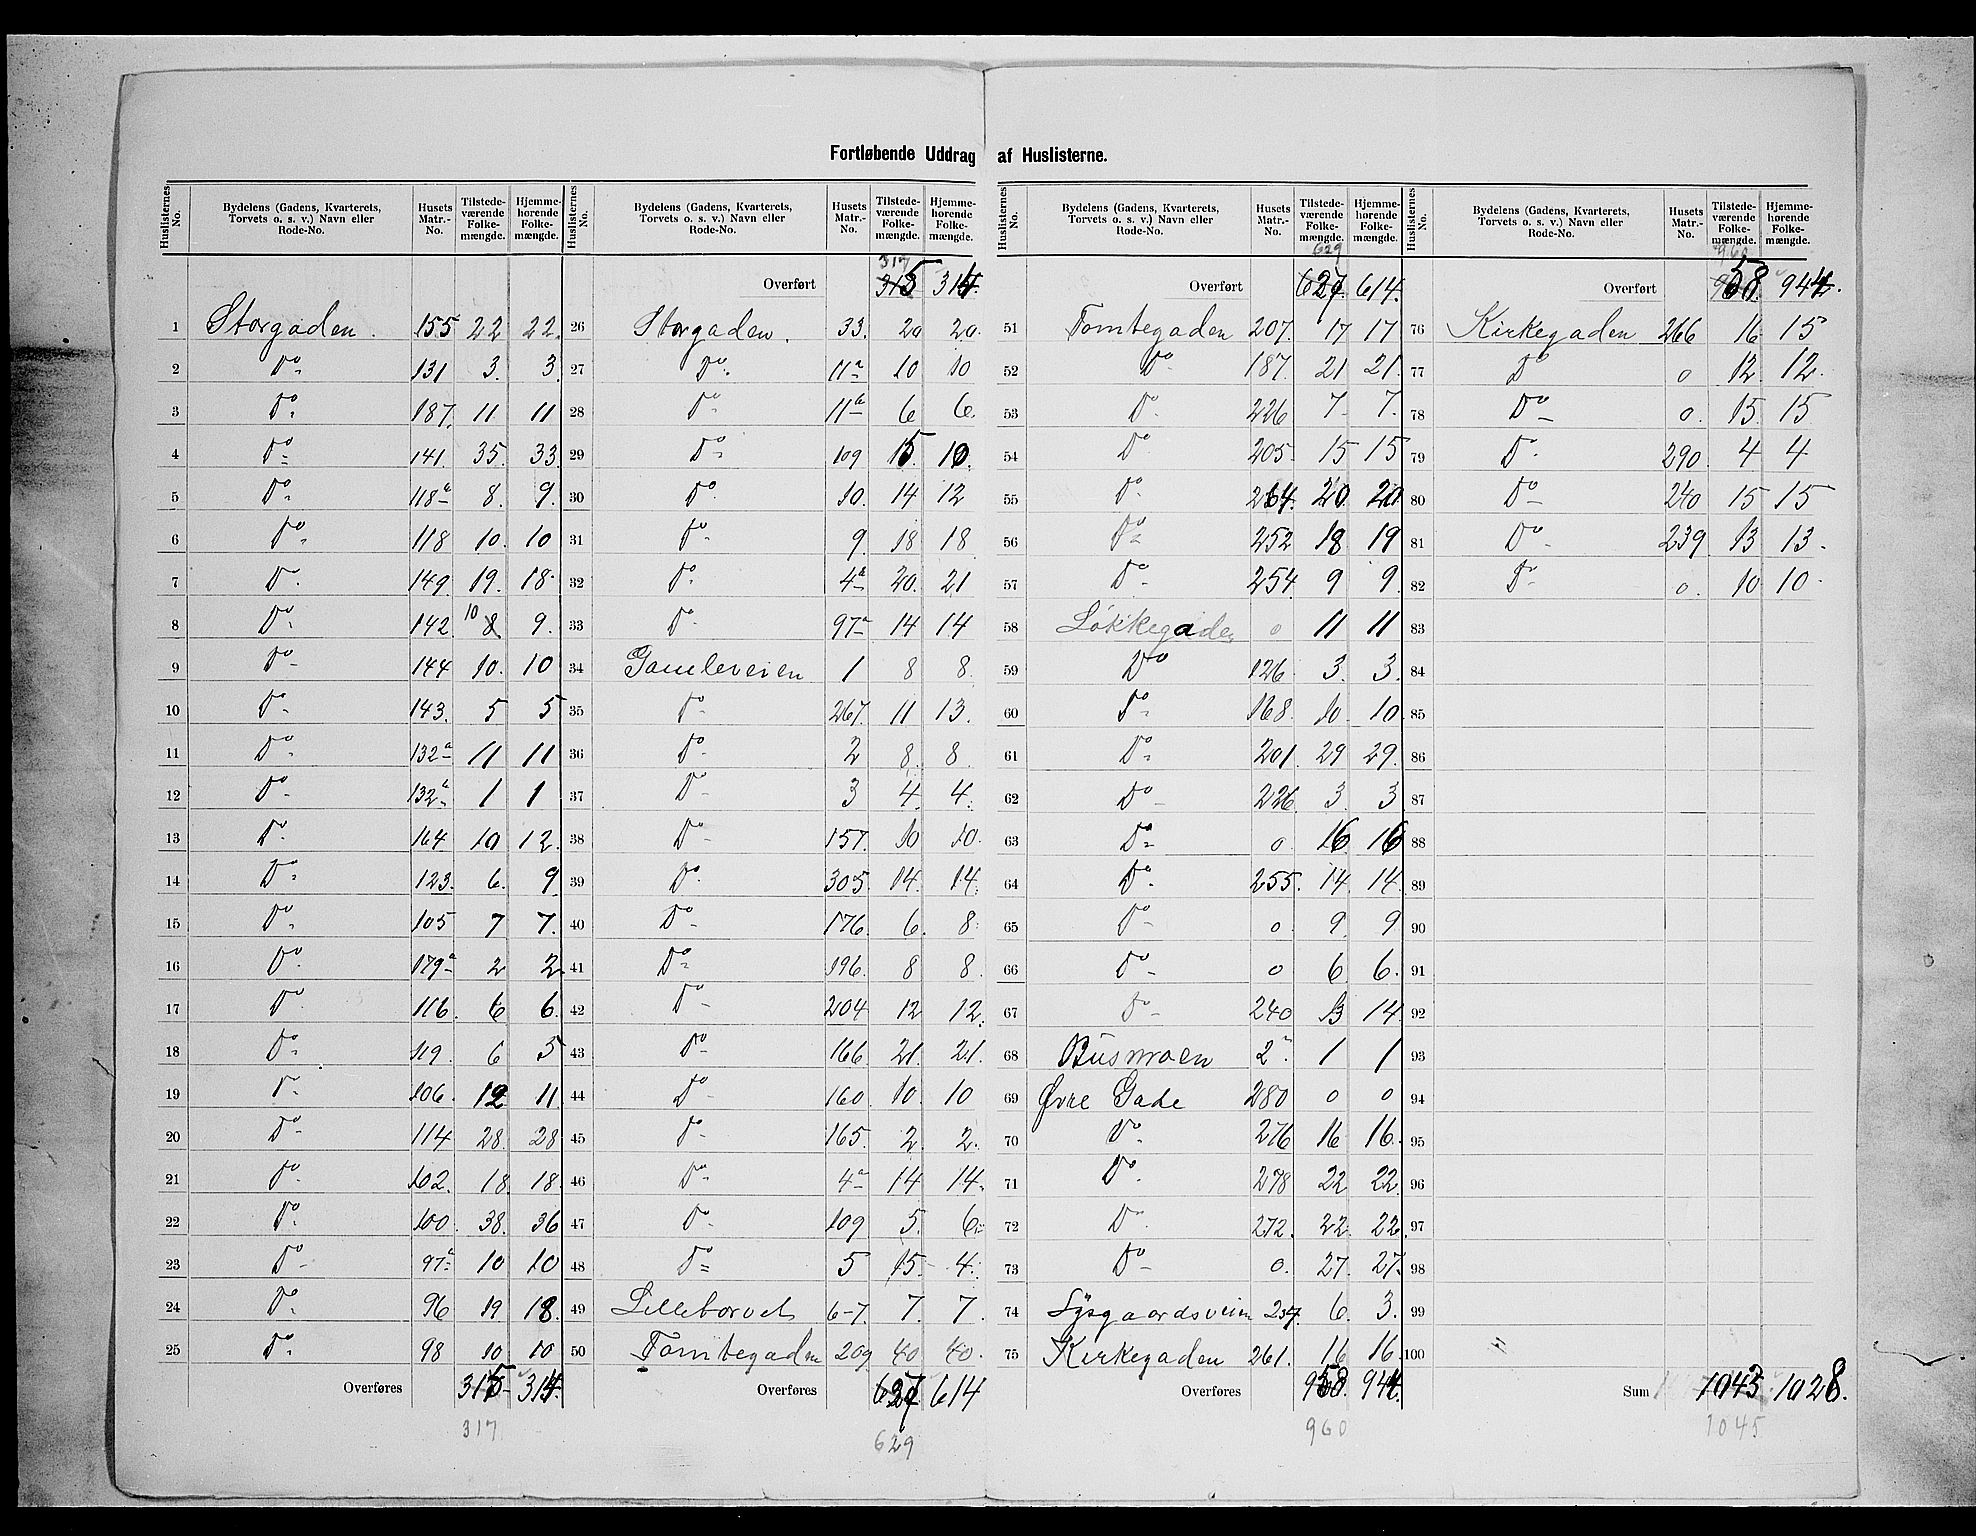 Fortløbende Uddrag af Huslisterne.
Huslisternes No. | Bydelens (Gadens, Kvarterets, Torvets o. s. v.) Navn eller Rode-No. | Husets Matr.-No. | Tilstede-værende Folke-mængde. | Hjemme-hørende Folke-mængde.
1 Storgaden. 155 22 22.
2 Do 131 3. 3.
3 Do 187. 11 11
4 Do 141. 35. 33.
5 Do 118b 8. 9.
6 Do 118 10. 10
7 Do 149. 19. 18.
8 Do 142 10 8 9.
9 Do 144 10. 10
10 Do 143. 5 5
11 Do 132a 11 11
12 Do 132b 1 1
13 Do 164 10 12.
14 Do 123. 6. 9.
15 Do 105 7 7.
16 Do 179a 2 2.
17 Do 116. 6 6.
18 Do 119. 6 5
19 Do 106. 12 11.
20 Do 114 28. 28
21 Do 102. 18. 18.
22 Do 100. 38. 36
23 Do 97b 10 10
24 Do 96 19 18.
25 Do 98 10. 10
Overføres 315 314.
317
Huslisternes No. | Bydelens (Gadens, Kvarterets, Torvets o. s. v.) Navn eller Rode-No. | Husets Matr.-No. | Tilstede-værende Folke-mængde. | Hjemme-hørende Folke-mængde.
317
Overført 315 314.
26 Storgaden. 33. 20 20.
27 Do 11a 10 10
28 Do 11b 6 6.
29 Do 109 15. 10.
30 Do 10. 14 12
31 Do 9. 18 18
32 Do 4b 20. 21
33 Do 97a 14 14
34 Gamleveien 1 8 8.
35 Do 267. 11 13.
36 Do 2 8. 8.
37 Do 3 4. 4.
38 Do 157. 10 10.
39 Do 305. 14. 14.
40 Do 176. 6. 8.
41 Do 196. 8 8.
42 Do 204 12 12.
43 Do 166. 21. 21.
44 Do 160. 10. 10
45 Do 165. 2. 2.
46 Do 4a 14 14.
47 Do 109 5. 6.
48 Do 5 15. 4.
49 Lilletorvet 6-7 7. 7.
50 Tomtegaden 209 40 40.
Overføres 627 614
629
Huslisternes No. | Bydelens (Gadens, Kvarterets, Torvets o. s. v.) Navn eller Rode-No. | Husets Matr.-No. | Tilstede-værende Folke-mængde. | Hjemme-hørende Folke-mængde.
629
Overført 627. 614.
51 Tomtegaden 207. 17 17
52 Do 187. 21 21.
53 Do 226 7. 7.
54 Do 205. 15 15
55 Do 264. 20. 20
56 Do 252 18 19
57 Do 254. 9 9.
58 Løkkegaden 0 11 11
59 Do 126. 3. 3.
60 Do 168. 10. 10.
61 Do 201. 29 29.
62 Do 226. 3. 3
63 Do 0. 16. 16
64 Do 255. 14. 14.
65 Do 0. 9. 9
66 Do 0 6 6.
67 Do 240 13 14
68 Busmoen 2a 1 1
69 Øvre Gade 280 0 0
70 Do 276 16 16.
71 Do 278 22 22.
72 Do 272. 22. 22.
73 Do 0. 27. 27.
74 Lysgaardsveien 237. 6. 3.
75 Kirkegaden 261. 16 16.
Overføres 958. 944.
960
Huslisternes No. | Bydelens (Gadens, Kvarterets, Torvets o. s. v.) Navn eller Rode-No. | Husets Matr.-No. | Tilstede-værende Folke-mængde. | Hjemme-hørende Folke-mængde.
960
Overført 958. 944.
76 Kirkegaden 266 16 15
77 Do 0 12. 12.
78 Do 0. 15. 15
79 Do 290 4 4
80 Do 240 15 15
81 Do 239. 13 13.
82 Do 0. 10 10.
83
84
85
86
87
88
89
90
91
92
93
94
95
96
97
98
99
100
Sum 1043 1028.
1045